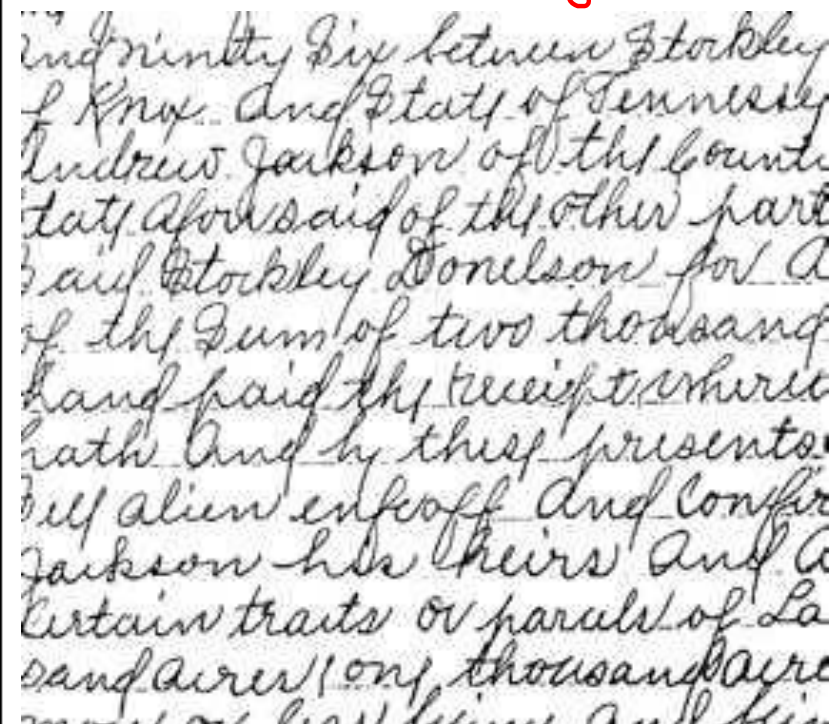 and ninety Six between Stockley
of Knox and State of Tennessee
Andrew Jackson of the Count
tate aforesaid of the other part
said Stockley Donelson for a
of the Sum of two thousand
hand paid the receipt where
hath and by these presents
Sell alien enfeoff and Confir
Jackson his heirs and a
Certain tracts or parcels of La
sand acres one thousand acre
more or less lying and